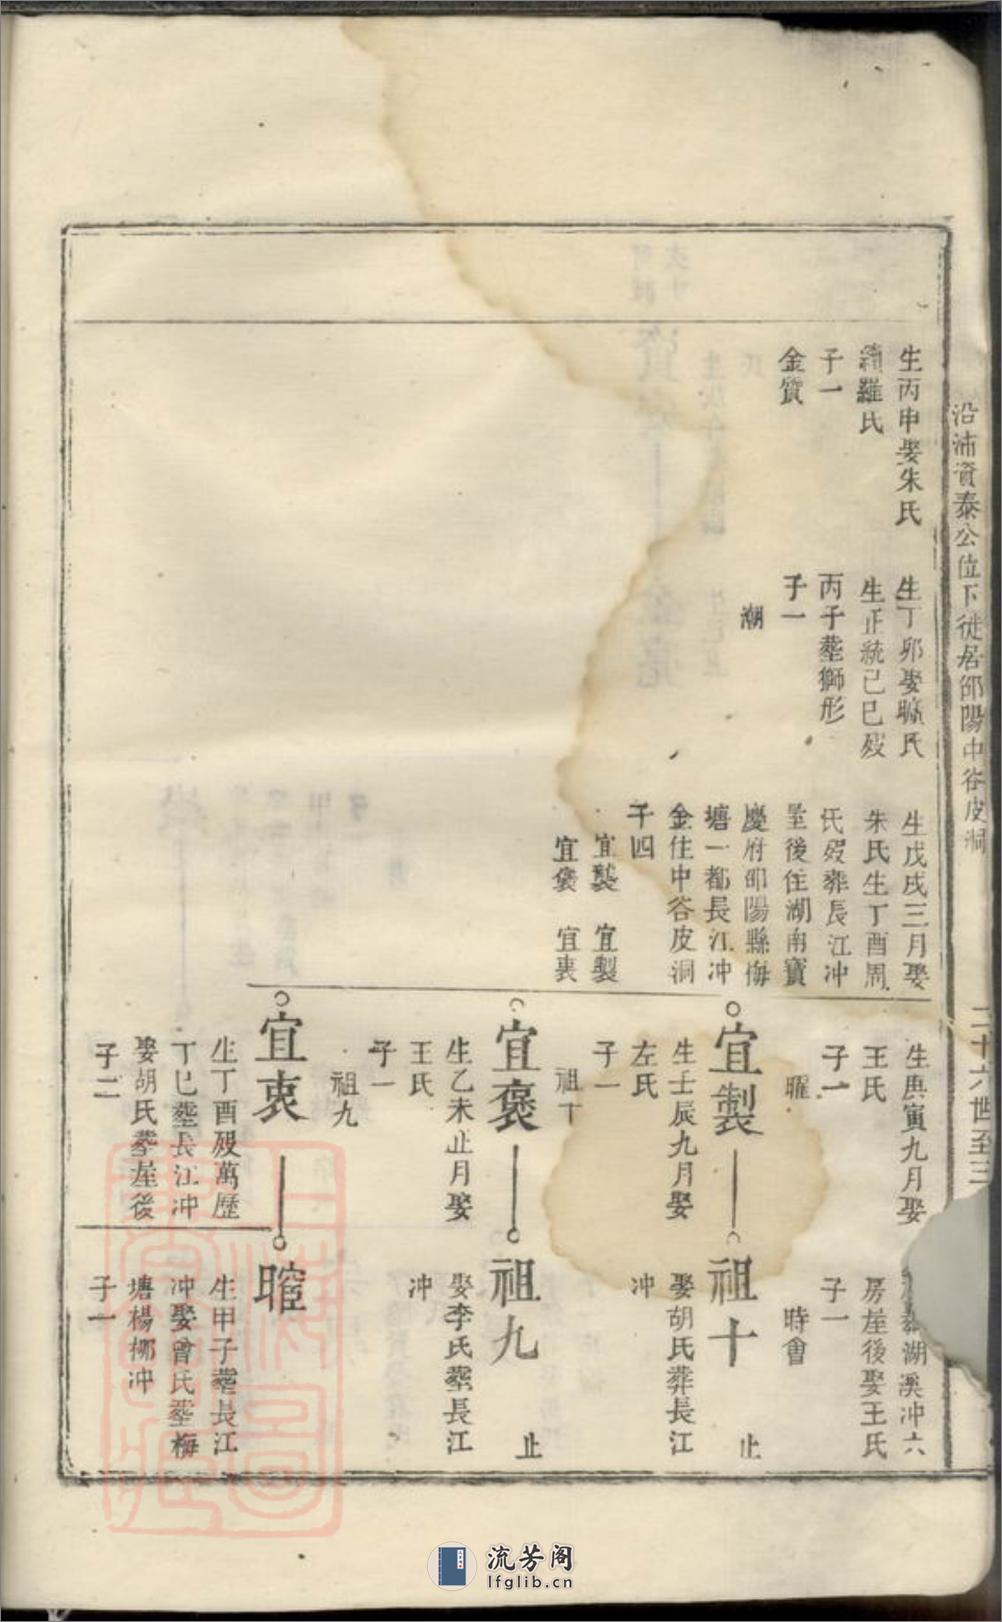 沿沛資泰公位下徙居邵陽中谷皮洞
二十六世至三
生丙申娶朱氏
繼羅氏
子一
金質
生丁卯娶曠氏
生正統己巳歿
丙子塟獅形
子一
潮
生戊戌三月娶
朱氏生丁酉周
氏歿葬長江冲
屋後住湖南寶
慶府邵陽縣梅
塘一都長江冲
金住中谷皮洞
子四
宜䙱 宜製
宜褒 宜衷
生庚寅九月娶
王氏
子一
曜
塟湖溪冲六
房屋後娶王氏
子一
時會
宜製
生壬辰九月娶
左氏
子一
祖十
祖十
娶胡氏葬長江
冲
止
宜褒
生乙未正月娶
王氏
子一
祖九
祖九
娶李氏塟長江
冲
止
宜衷
生丁酉歿萬歷
丁巳塟長江冲
娶胡氏塟屋後
子二
生甲子塟長江
冲娶曾氏塟梅
塘楊梛冲
子一
流芳阁
lfglib.cn